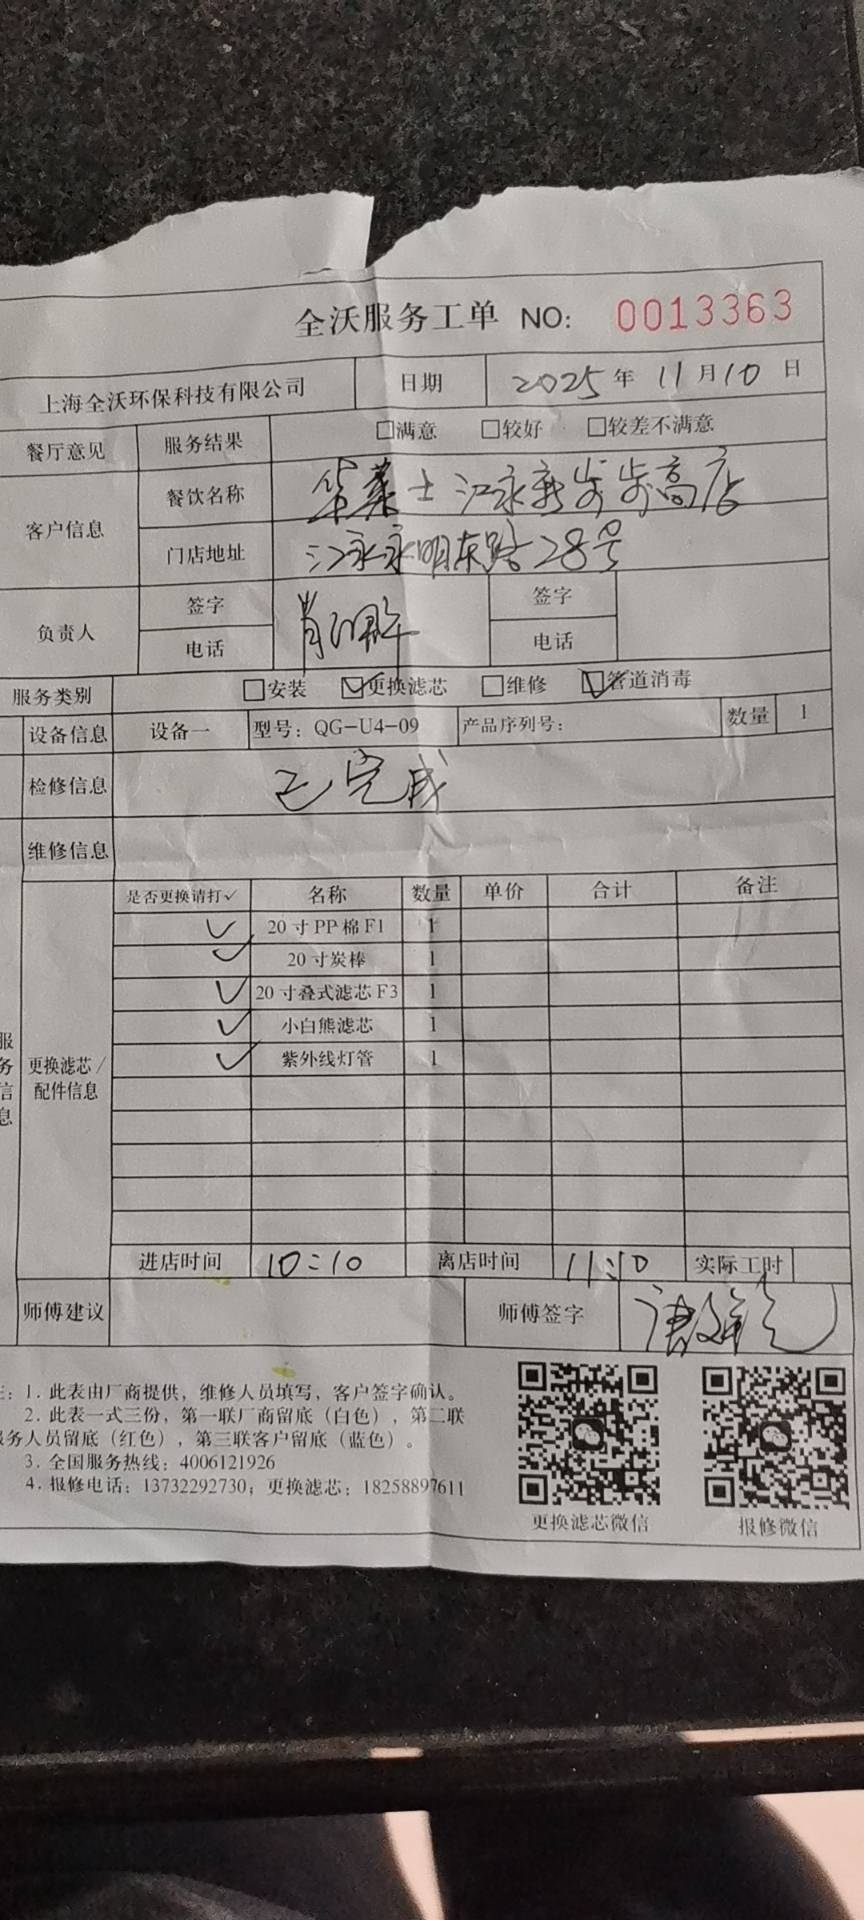 全沃服务工单 NO: 0013363
上海全沃环保科技有限公司 日期 2025年 11月10日
餐厅意见 服务结果 □满意 □较好 □较差不满意
客户信息 餐饮名称 华莱士江永新步步高店
门店地址 江永永明东路28号
负责人 签字 肖 签字
电话 电话
服务类别 □安装 ☑更换滤芯 □维修 ☑管道消毒
设备信息 设备一 型号：QG-U4-09 产品序列号： 数量 1
检修信息 已完成
维修信息
是否更换请打✓ 名称 数量 单价 合计 备注
✓ 20寸PP棉F1 1
✓ 20寸炭棒 1
✓ 20寸叠式滤芯F3 1
✓ 小白熊滤芯 1
✓ 紫外线灯管 1
服务信息
更换滤芯/
配件信息
进店时间 10:10 离店时间 11:10 实际工时
师傅建议 师傅签字 唐
：1. 此表由厂商提供，维修人员填写，客户签字确认。
2. 此表一式三份，第一联厂商留底（白色），第二联
务人员留底（红色），第三联客户留底（蓝色）。
3. 全国服务热线：4006121926
4. 报修电话：13732292730；更换滤芯：18258897611
更换滤芯微信 报修微信